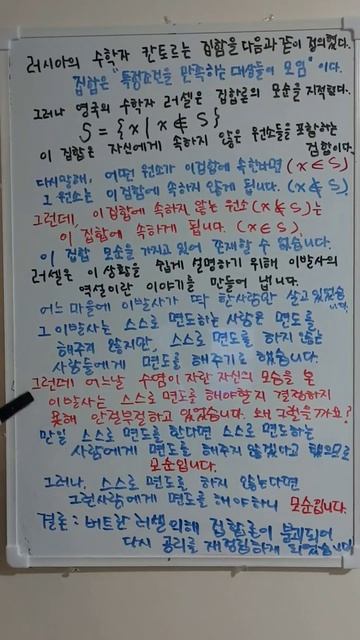 러시아의 수학자 칸토르는 집합을 다음과 같이 정의했다.
집합은 "특정조건을 만족하는 대상들의 모임" 이다.
그러나 영국의 수학자 러셀은 집합론의 모순을 지적했다.
S = {x | x ∉ S}
이 집합은 자신에게 속하지 않은 원소들을 포함하는
집합이다.
다시말해, 어떤 원소가 이집합에 속한다면 (x ∈ S)
그 원소는 이 집합에 속하지 않게 됩니다. (x ∉ S)
그런데, 이 집합에 속하지 않는 원소 (x ∉ S)는
이 집합에 속하게 됩니다. (x ∈ S),
이 집합 모순을 가지고 있어 존재할 수 없습니다.
러셀은 이 상황을 쉽게 설명하기 위해 이발사의
역설이란 이야기를 만들어 냅니다.
어느 마을에 이발사가 딱 한사람만 살고 있었습니다.
그 이발사는 스스로 면도하는 사람은 면도를
해주지 않지만 스스로 면도를 하지 않는
사람들에게 면도를 해주기로 했습니다.
그런데 어느날 수염이 자란 자신의 모습을 본
이발사는 스스로 면도를 해야할지 결정하지
못해 안절부절하고 있었습니다. 왜 그랬을까요?
만일 스스로 면도를 한다면 스스로 면도하는
사람에게 면도를 해주지 않겠다고 했으므로
모순입니다.
그러나, 스스로 면도를 하지 않는다면
그런사람에게 면도를 해야하니 모순입니다.
결론 : 버트란 러셀에 의해 집합론이 붕괴되어
다시 공리를 재정립하게 되었습니다